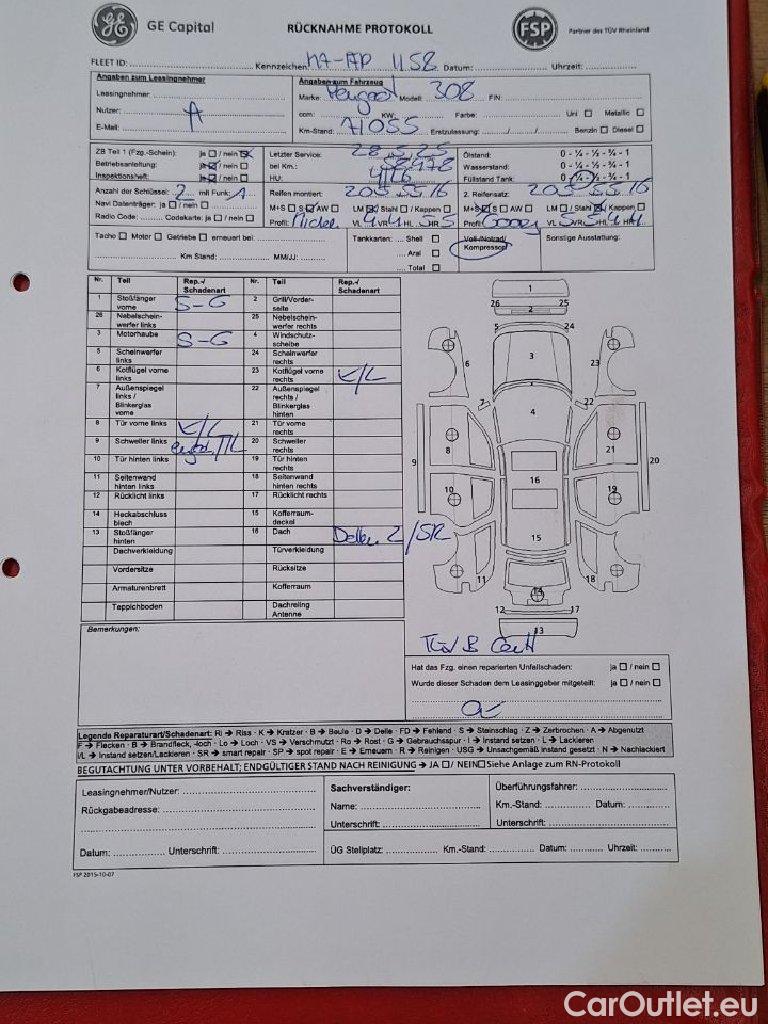 GE Capital RÜCKNAHME PROTOKOLL FSP Partner des TÜV Rheinland
FLEET ID: Kennzeichen 1158 Datum: Uhrzeit:
Angaben zum Leasingnehmer Angaben zum Fahrzeug
Leasingnehmer: Marke: Peugeot Modell: 308 FIN:
Nutzer: A com: KW: Farbe: Uni Metallic
E-Mail: Km-Stand: 71055 Erstzulassung: Benzin Diesel
ZB Teil 1 (Fzg.-Schein): ja / nein Letzter Service: 28.5.25 Ölstand: 0 - ¼ - ½ - ¾ - 1
Betriebsanleitung: ja / nein bei Km.: 58478 Wasserstand: 0 - ¼ - ½ - ¾ - 1
Inspektionsheft: ja / nein HU: Füllstand Tank: 0 - ¼ - ½ - ¾ - 1
Anzahl der Schlüssel: 2 mit Funk: Reifen montiert: 205 55 16 2. Reifensatz: 205 55 16
Navi Datenträger: ja / nein M+S S AW LM / Stahl / Kappen M+S S AW LM / Stahl / Kappen
Radio Code: Codekarte: ja / nein Profil: VL 4 VR 4 HL 5 HR 5 Profil VL 5 VR 5 HL 4 HR 4
Tacho Motor Getriebe erneuert bei: Tankkarten: Shell Voll-/Notrad/ Sonstige Ausstattung:
Kompressor
Aral
Km Stand: MM/JJ: Total
Nr. Teil Rep.-/ Schadenart Nr. Teil Rep.-/ Schadenart
1 Stoßfänger vorne S-G 2 Grill/Vorderseite
26 Nebelscheinwerfer links 25 Nebelscheinwerfer rechts
3 Motorhaube S-G 4 Windschutzscheibe
5 Scheinwerfer links 24 Scheinwerfer rechts
6 Kotflügel vorne links 23 Kotflügel vorne rechts K/L
7 Außenspiegel links / Blinkerglas vorne 22 Außenspiegel rechts / Blinkerglas hinten
8 Tür vorne links K/L 21 Tür vorne rechts
9 Schweller links 20 Schweller rechts
10 Tür hinten links 19 Tür hinten rechts
11 Seitenwand hinten links 18 Seitenwand hinten rechts
12 Rücklicht links 17 Rücklicht rechts
14 Heckabschlussblech 15 Kofferraumdeckel
13 Stoßfänger hinten 16 Dach Dellen 2/SR
Dachverkleidung Türverkleidung
Vordersitze Rücksitze
Armaturenbrett Kofferraum
Teppichboden Dachreling Antenne
1
26 2 25
5 24
6 3 23
7 22
4
8 21
9 16 20
10 19
15
11 18
14
12 17
13
Bemerkungen:
Hat das Fzg. einen reparierten Unfallschaden: ja / nein
Wurde dieser Schaden dem Leasinggeber mitgeteilt: ja / nein
Legende Reparaturart/Schadenart: Ri → Riss - K → Kratzer - B → Beule - D → Delle - FD → Fehlend - S → Steinschlag - Z → Zerbrochen - A → Abgenutzt
F → Flecken - B → Brandfleck, -loch - Lo → Loch - VS → Verschmutzt - Ro → Rost - G → Gebrauchsspur - I → Instand setzen - L → Lackieren
I/L → Instand setzen/Lackieren - SR → smart repair - SP → spot repair - E → Erneuern - R → Reinigen - USG → Unsachgemäß instand gesetzt - N → Nachlackiert
BEGUTACHTUNG UNTER VORBEHALT; ENDGÜLTIGER STAND NACH REINIGUNG → JA / NEIN Siehe Anlage zum RN-Protokoll
Leasingnehmer/Nutzer: Sachverständiger: Überführungsfahrer:
Rückgabeadresse: Name: Km.-Stand: Datum:
Unterschrift: Unterschrift:
Datum: Unterschrift: ÜG Stellplatz: Km.-Stand: Datum: Uhrzeit:
FSP 2015-10-07
CarOutlet.eu